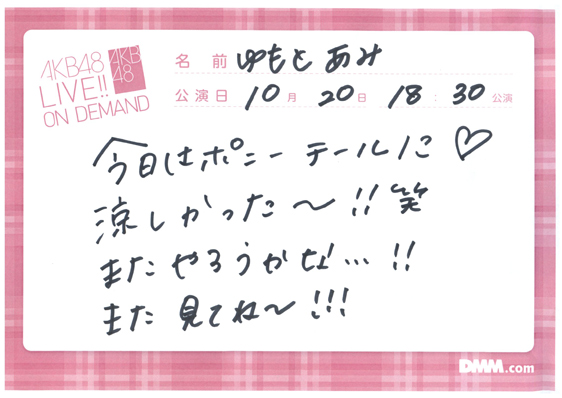 AKB48
LIVE!!
ON DEMAND
AKB48
名前 ゆもとあみ
公演日 10月20日 18:30公演
今日はポニーテールに♡
涼しかった〜!!笑
またやろうかな…!!
また見てね〜!!!
DMM.com